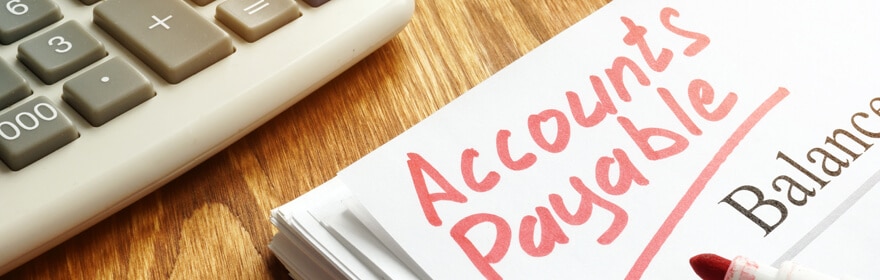 6
+
=
3
.
000
Accounts
Payable
Balance